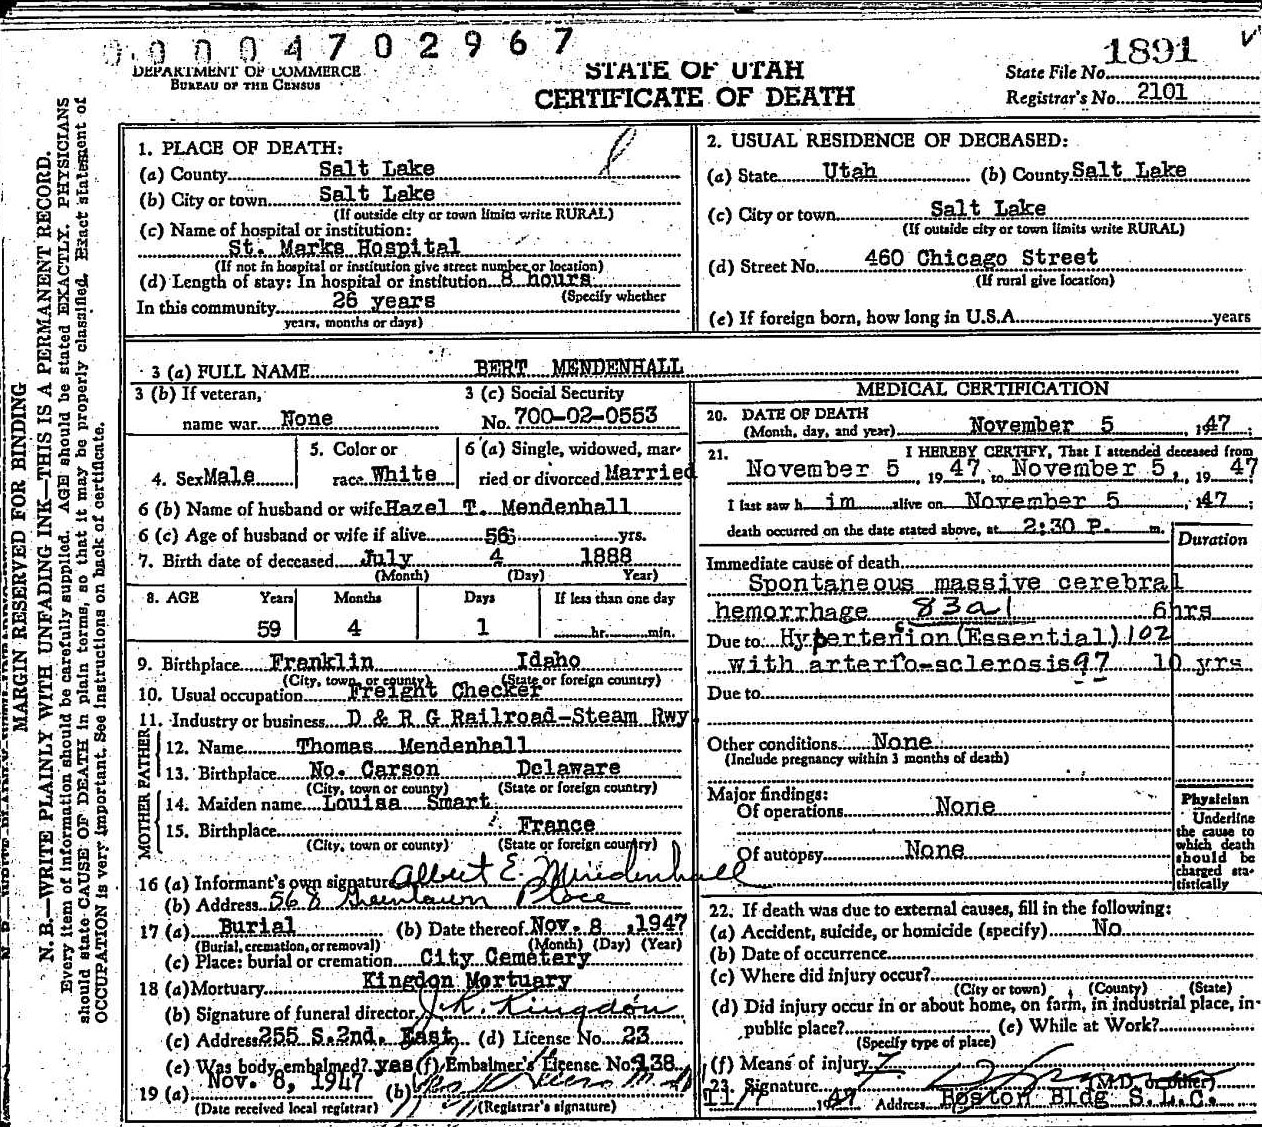 0.0004702967
1891
DEPARTMENT OF COMMERCE
BUREAU OF THE CENSUS
STATE OF UTAH
CERTIFICATE OF DEATH
State File No.
Registrar's No. 2101
MARGIN RESERVED FOR BINDING
N. B.—WRITE PLAINLY WITH UNFADING INK—THIS IS A PERMANENT RECORD.
Every item of information should be carefully supplied. AGE should be stated EXACTLY. PHYSICIANS
should state CAUSE OF DEATH in plain terms, so that it may be properly classified. Exact statement of
OCCUPATION is very important. See instructions on back of certificate.
1. PLACE OF DEATH:
(a) County Salt Lake
(b) City or town Salt Lake
(If outside city or town limits write RURAL)
(c) Name of hospital or institution:
St. Marks Hospital
(If not in hospital or institution give street number or location)
(d) Length of stay: In hospital or institution 8 hours
(Specify whether
In this community 26 years
years, months or days)
2. USUAL RESIDENCE OF DECEASED:
(a) State Utah (b) County Salt Lake
(c) City or town Salt Lake
(If outside city or town limits write RURAL)
(d) Street No. 460 Chicago Street
(If rural give location)
(e) If foreign born, how long in U.S.A. years
3 (a) FULL NAME BERT MENDENHALL
3 (b) If veteran,
name war None
3 (c) Social Security
No. 700-02-0553
4. Sex Male
5. Color or
race White
6 (a) Single, widowed, mar-
ried or divorced Married
6 (b) Name of husband or wife Hazel T. Mendenhall
6 (c) Age of husband or wife if alive 56 yrs.
7. Birth date of deceased July 4 1888
(Month) (Day) Year)
8. AGE Years Months Days If less than one day
59 4 1 hr. min.
9. Birthplace Franklin Idaho
(City, town, or county) (State or foreign country)
10. Usual occupation Freight Checker
11. Industry or business D & R G Railroad-Steam Rwy
FATHER
12. Name Thomas Mendenhall
13. Birthplace No. Carson Delaware
(City, town or county) (State or foreign country)
MOTHER
14. Maiden name Louisa Smart
15. Birthplace France
(City, town or county) (State or foreign country)
16 (a) Informant's own signature Albert E. Mendenhall
(b) Address 568 Greenlawn Place
17 (a) Burial (b) Date thereof Nov. 8, 1947
(Burial, cremation, or removal) (Month) (Day) (Year)
(c) Place: burial or cremation City Cemetery
18 (a) Mortuary Kingdon Mortuary
(b) Signature of funeral director J. K. Kingdon
(c) Address 255 S. 2nd. East (d) License No. 23
(e) Was body embalmed? yes (f) Embalmer's License No. 138
19 (a) Nov. 8, 1947 (b)
(Date received local registrar) (Registrar's signature)
MEDICAL CERTIFICATION
20. DATE OF DEATH
(Month, day, and year) November 5, 1947;
21. I HEREBY CERTIFY, That I attended deceased from
November 5, 1947, to November 5, 1947
I last saw h im alive on November 5, 1947;
death occurred on the date stated above, at 2:30 P. m.
Duration
Immediate cause of death
Spontaneous massive cerebral
hemorrhage 83a1 6hrs
Due to Hypertension (Essential) 102
with arterio-sclerosis 97 10 yrs
Due to
Other conditions None
(Include pregnancy within 3 months of death)
Major findings:
Of operations None
Of autopsy None
Physician
Underline
the cause to
which death
should be
charged sta-
tistically
22. If death was due to external causes, fill in the following:
(a) Accident, suicide, or homicide (specify) No
(b) Date of occurrence
(c) Where did injury occur?
(City or town) (County) (State)
(d) Did injury occur in or about home, on farm, in industrial place, in-
public place? (e) While at Work?
(Specify type of place)
(f) Means of injury
23. Signature (M.D. or other)
11/7 1947 Address Boston Bldg S.L.C.